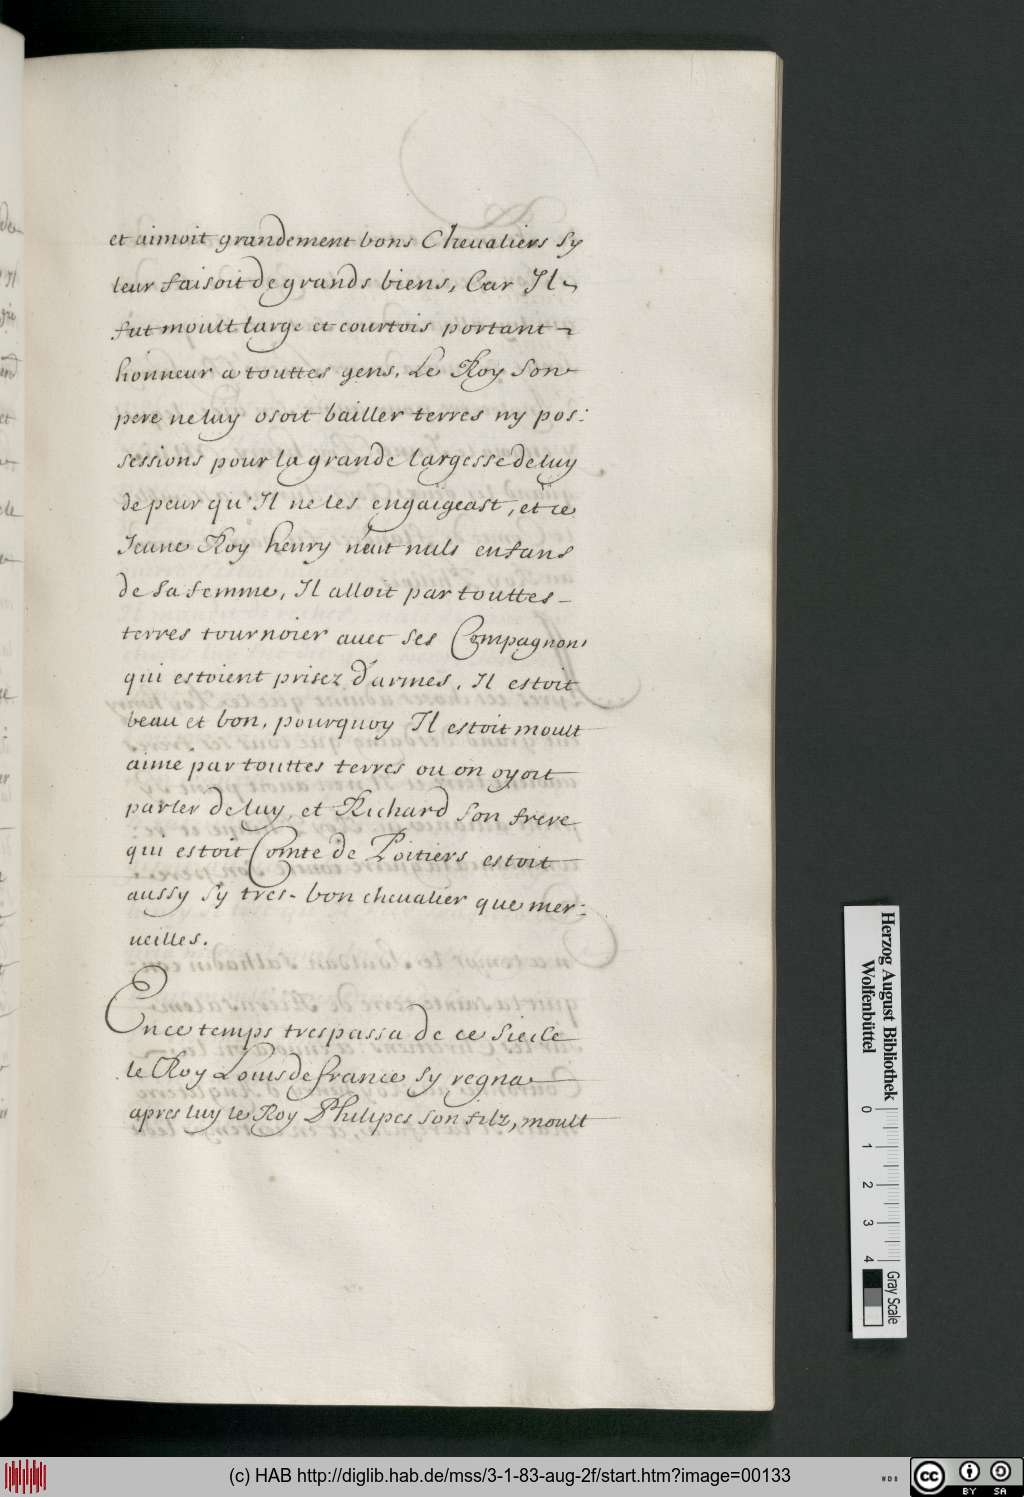 et aimoit grandement bons Chevaliers sy
leur faisoit de grands biens, Car Il
fut moult large et courtois portant
honneur a touttes gens. Le Roy son
pere ne luy osoit bailler terres ny pos:
sessions pour la grande largesse de luy
de peur qu'Il ne les engaigeast, et ce
Jeune Roy henry neut nuls enfans
de sa femme, Il alloit par touttes
terres tournoier avec ses Compagnons
qui estoient prisez d'armes. Il estoit
beau et bon, pourquoy Il estoit moult
aimé par touttes terres ou on oyoit
parler de luy, et Richard son frere
qui estoit Comte de Poitiers estoit
aussy sy tres-bon chevalier que mer:
veilles.
En ce temps trespassa de ce siecle
le Roy Louis de france sy regna
apres luy le Roy Philipes son filz, moult
Herzog August Bibliothek
Wolfenbüttel
0 1 2 3 4
Gray Scale
(c) HAB http://diglib.hab.de/mss/3-1-83-aug-2f/start.htm?image=00133
WDB
cc BY SA